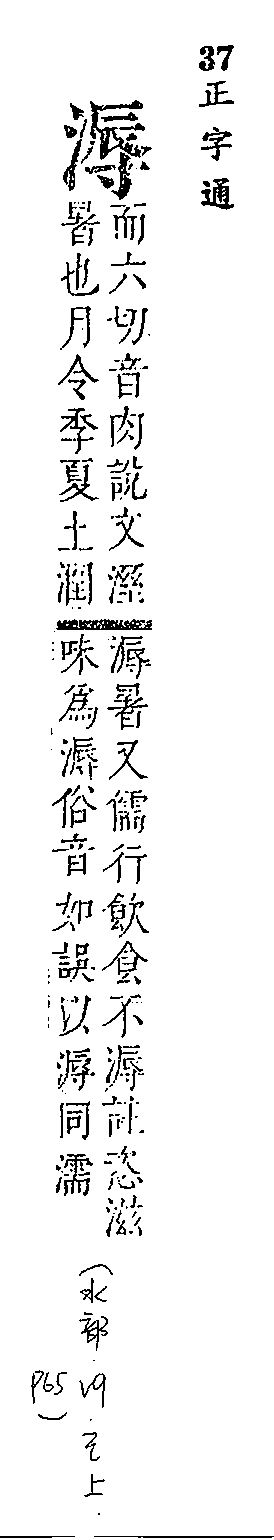 37 正字通
溽
而六切音肉說文溼
暑也月令季夏土潤
溽暑又儒行飲食不溽註恣滋
味爲溽俗音如誤以溽同濡
(水部 上.
P65)